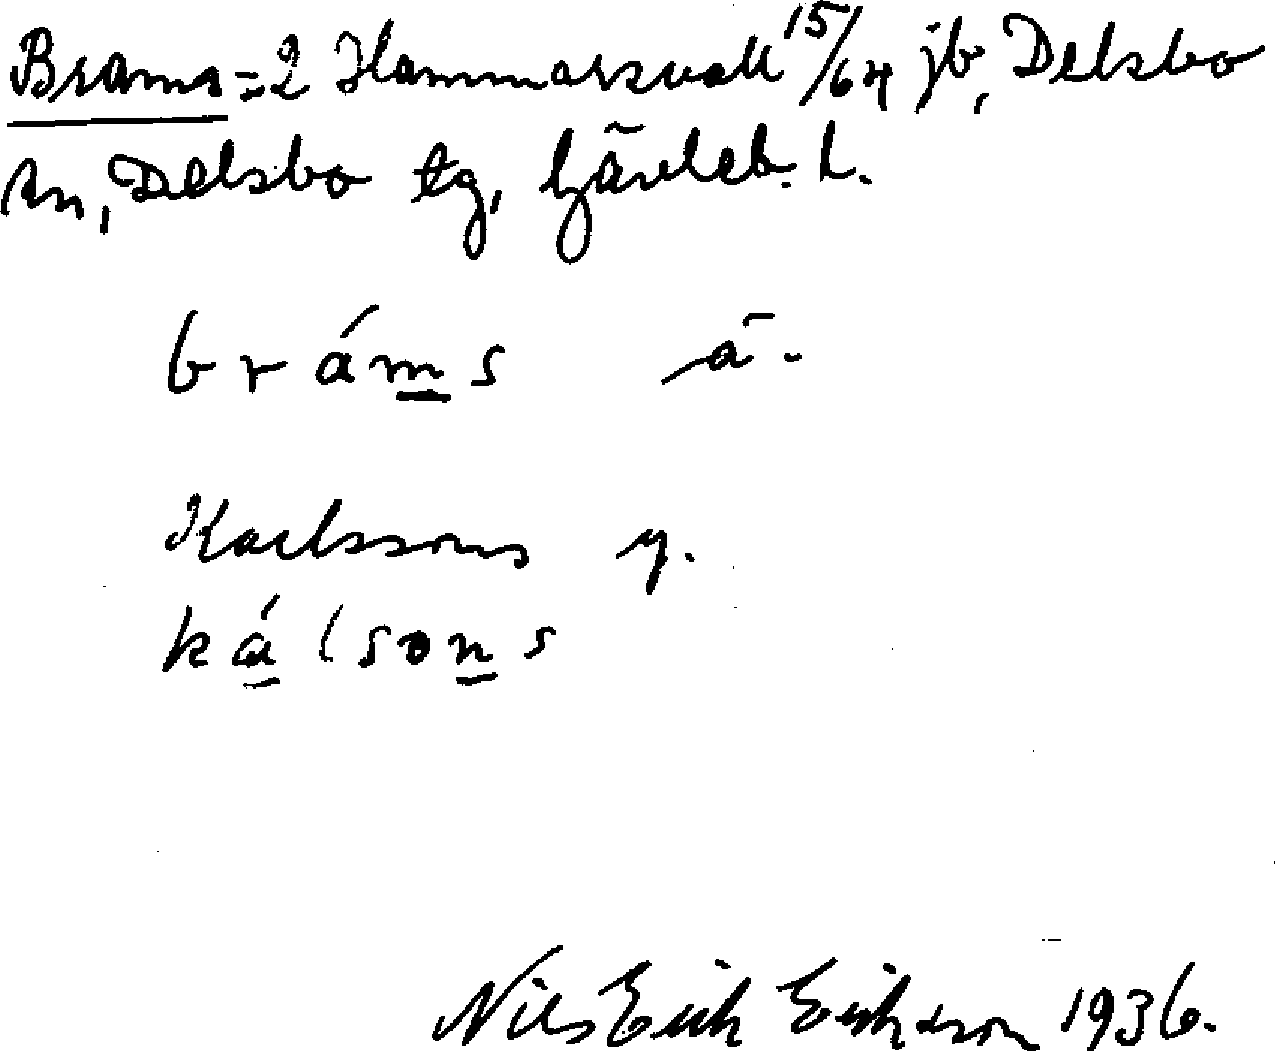 Brams = 2 Hammarsvall 15/64 jb, Delsbo
sn, Delsbo tg, Gävleb. L.
bráms ä.
Karlssons y.
kálsons
Nils Erik Eriksson 1936.